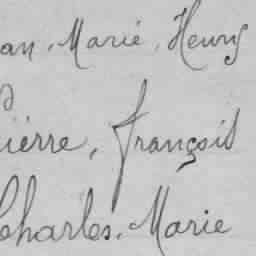 an, Marie, Henry
ierre, François
Charles, Marie